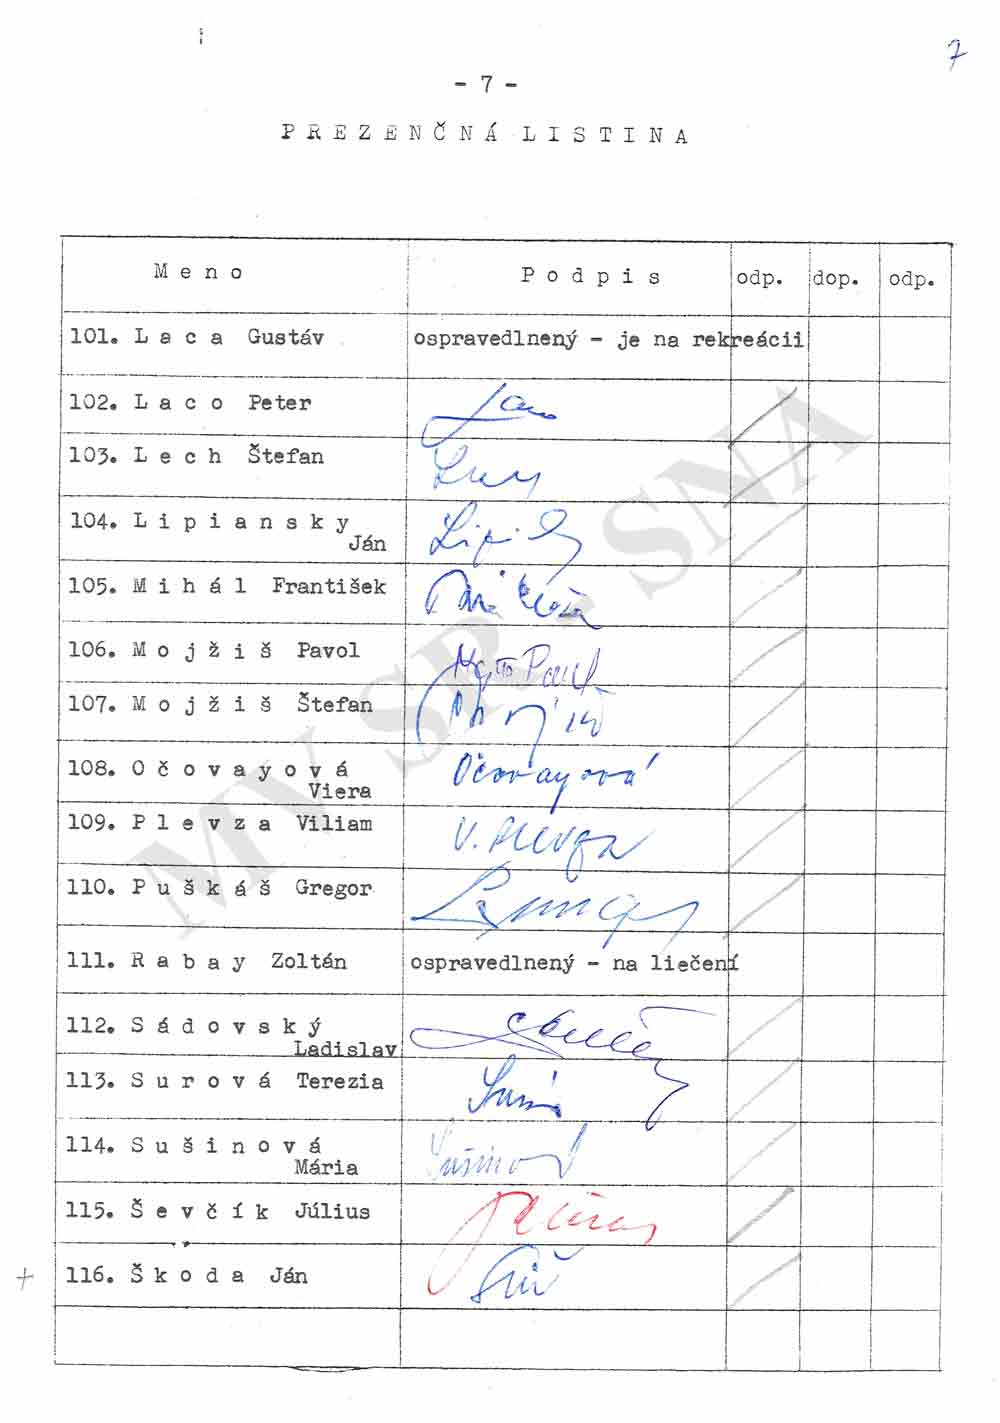 7
- 7 -
PREZENČNÁ LISTINA
Meno Podpis odp. dop. odp.
101. Laca Gustáv ospravedlnený - je na rekreácii
102. Laco Peter
103. Lech Štefan
104. Lipiansky
Ján
105. Mihál František
106. Mojžiš Pavol
107. Mojžiš Štefan
108. Očovayová Očovayová
Viera
109. Plevza Viliam V. Plevza
110. Puškáš Gregor
111. Rabay Zoltán ospravedlnený - na liečení
112. Sádovský
Ladislav
113. Surová Terezia
114. Sušinová
Mária
115. Ševčík Július
+ 116. Škoda Ján
MV SR - SNA